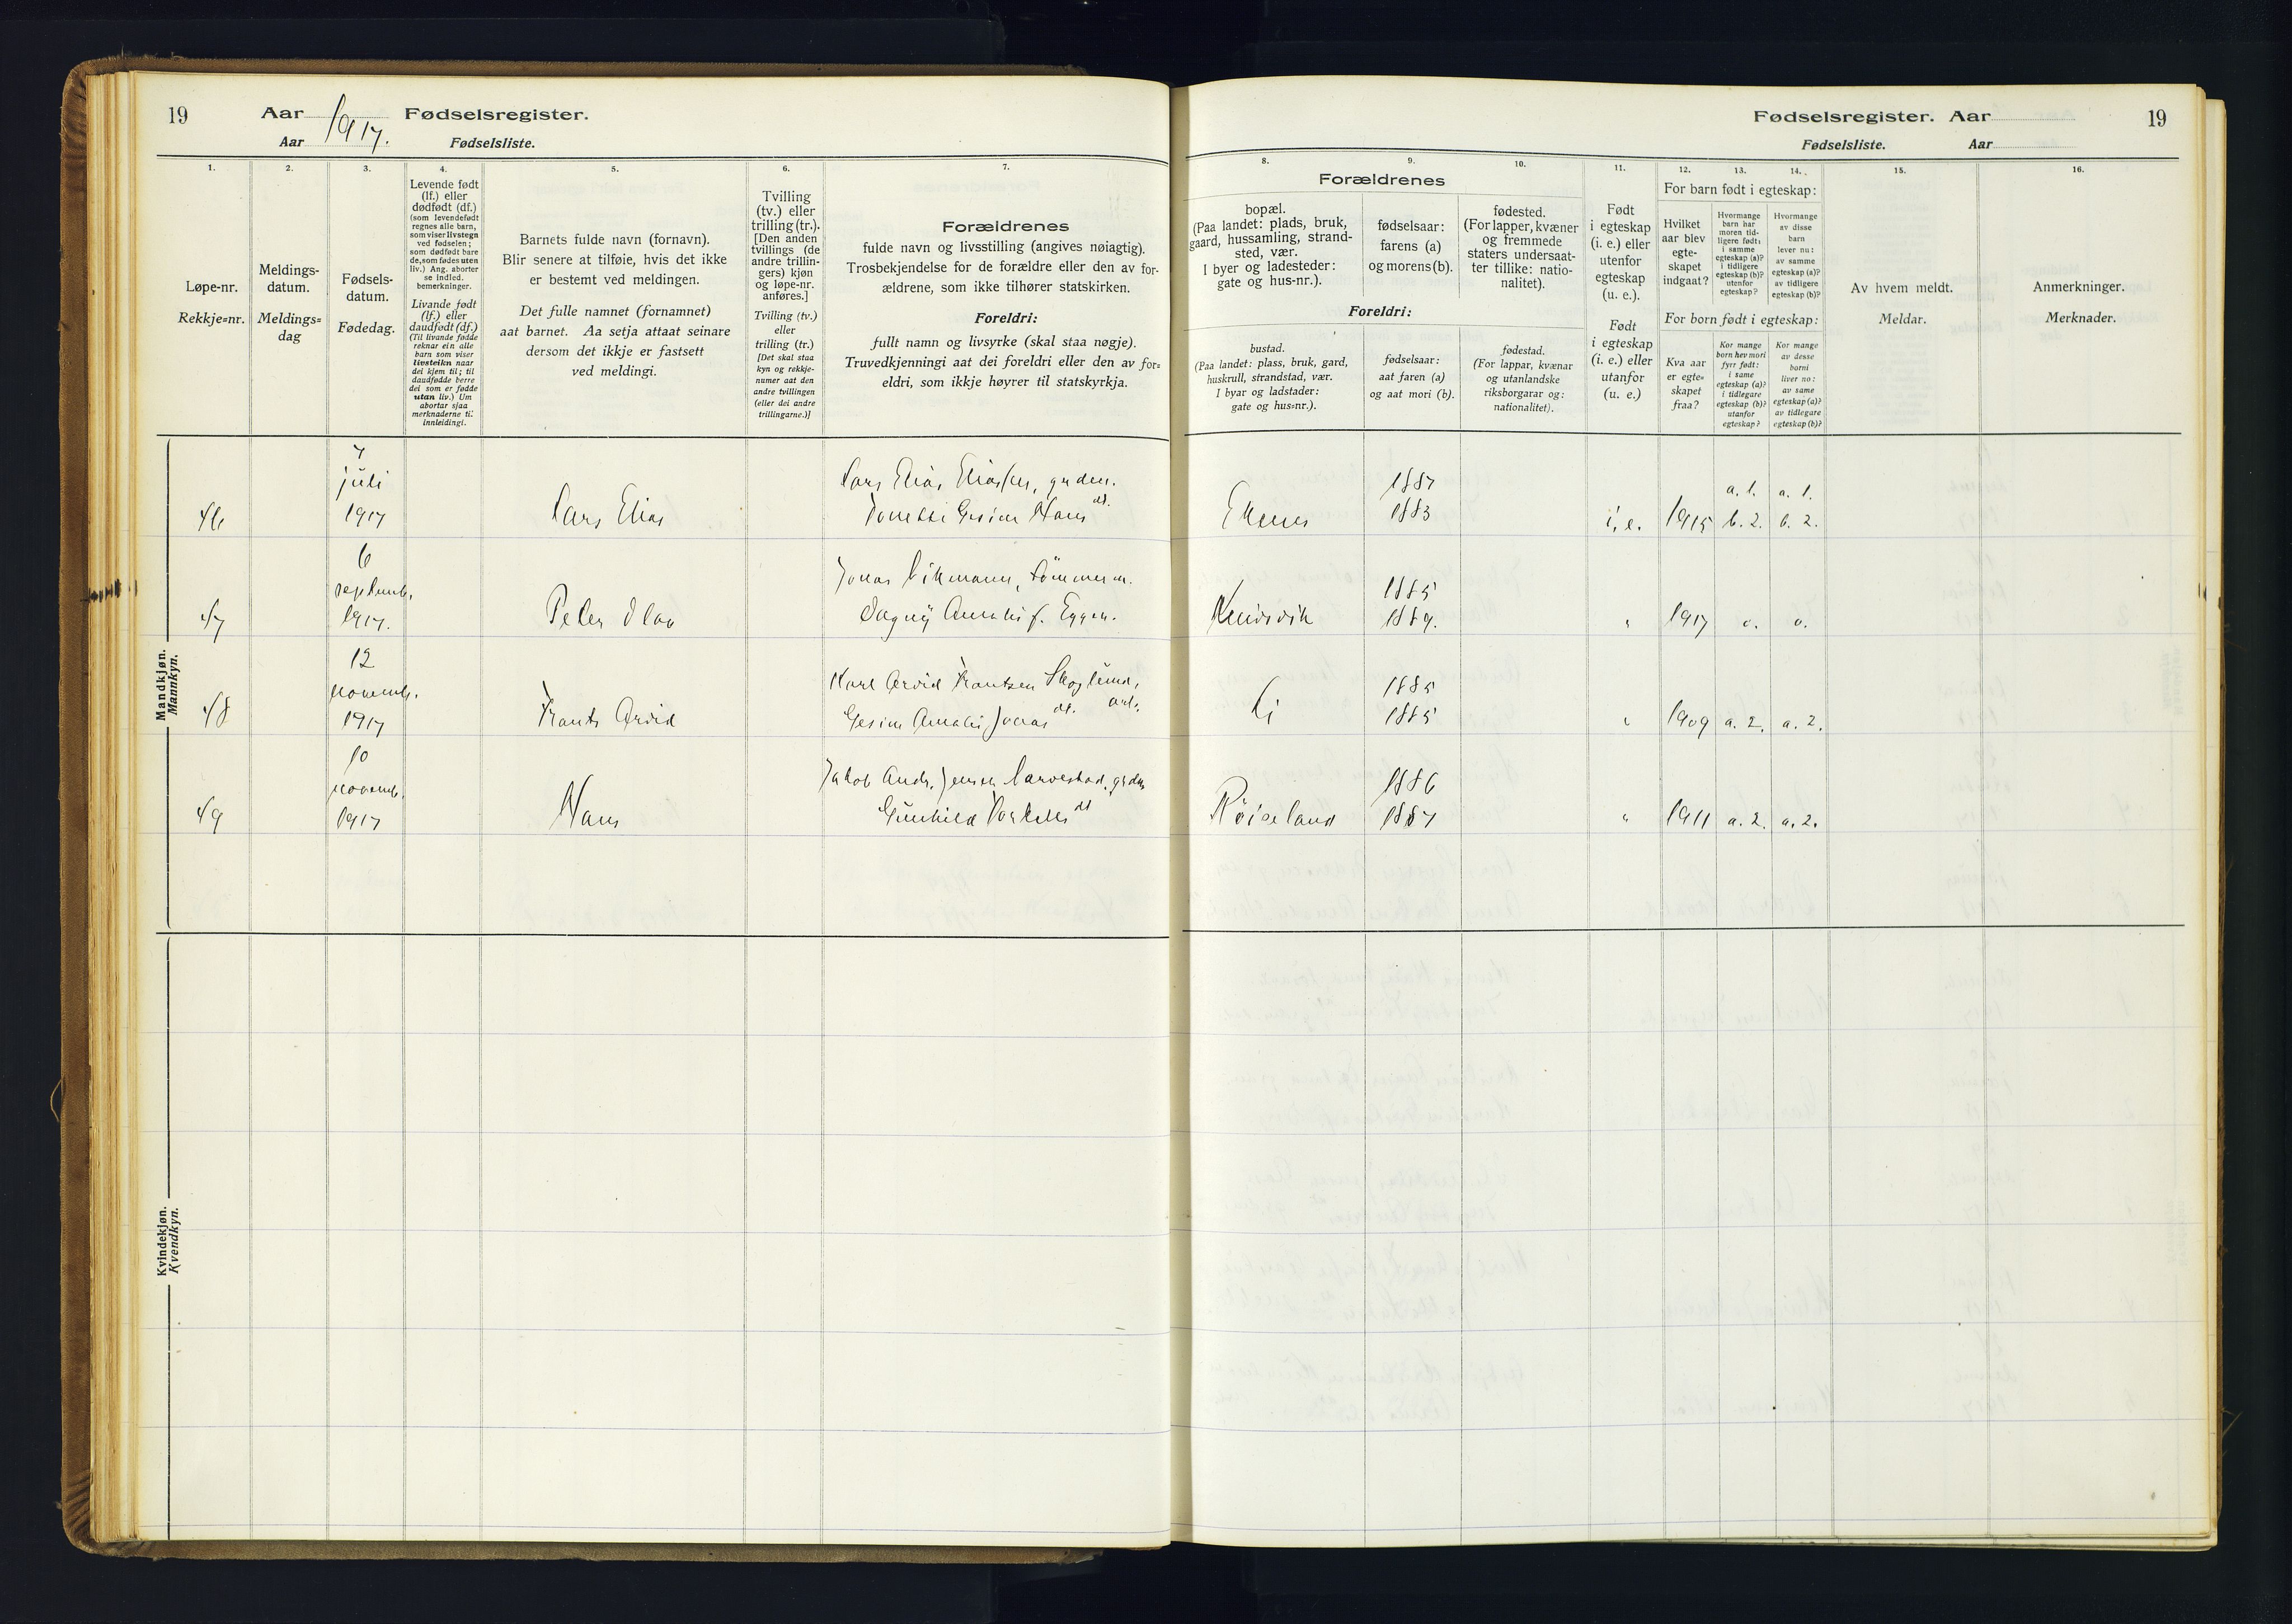 19
Aar 1917. Fødselsregister.
Aar Fødselsliste.
1.
Løpe-nr.
Rekkje=nr.
2.
Meldings-
datum.
Meldings=
dag
3.
Fødsels-
datum.
Fødedag.
4.
Levende født
(lf.) eller
dødfødt (df.)
(som levendefødt
regnes alle barn,
som viser livstegn
ved fødselen;
som dødfødt bare
de, som fødes uten
liv.) Ang. aborter
se indled.
bemerkninger.
Livande født
(lf.) eller
daudfødt (df.)
(Til livande fødde
reknar ein alle
barn som viser
livsteikn naar
dei kjem til; til
daudfødde berre
dei som er fødde
utan liv.) Um
abortar sjaa
merknaderne til
innleidingi.
5.
Barnets fulde navn (fornavn).
Blir senere at tilføie, hvis det ikke
er bestemt ved meldingen.
Det fulle namnet (fornamnet)
aat barnet. Aa setja attaat seinare
dersom det ikkje er fastsett
ved meldingi.
6.
Tvilling
(tv.) eller
trilling (tr.).
[Den anden
tvillings (de
andre trillin-
gers) kjøn
og løpe-nr.
anføres.]
Tvilling (tv.)
eller
trilling (tr.)
[Det skal staa
kyn og rekkje-
numer aat den
andre tvillingen
(eller dei andre
trillingarne.)]
7.
Forældrenes
fulde navn og livsstilling (angives nøiagtig).
Trosbekjendelse for de forældre eller den av for-
ældrene, som ikke tilhører statskirken.
Foreldri:
fullt namn og livsyrke (skal staa nøgje).
Truvedkjenningi aat dei foreldri eller den av for=
eldri, som ikkje høyrer til statskyrkja.
Mandkjøn.
Mannkyn.
7
juli
1917
46
Lars Elias
Lars Elias Eliassen, grdm.
Gesine Hansdt.
6
septemb.
1917.
47
Peter Olav
Jonas Vikmann, tømmerm.
Dagny f. Eggen.
12
novemb.
1917
48
Frants Arvid
Karl Arvid Frantzen Skoglund, arb.
Gesine Amalie Jonasdt.
10
novemb.
1917
49
Hans
Jakob Andr. Jensen Narvestad, grdm
Gunhild Torkelsdt
Kvindekjøn.
Kvendkyn.
Fødselsregister. Aar 19
Fødselsliste. Aar
8.
9.
10.
Forældrenes
bopæl.
(Paa landet: plads, bruk,
gaard, hussamling, strand-
sted, vær.
I byer og ladesteder:
gate og hus-nr.).
fødselsaar:
farens (a)
og morens (b).
fødested.
(For lapper, kvæner
og fremmede
staters undersaat-
ter tillike: natio-
nalitet).
Foreldri:
bustad.
(Paa landet: plass, bruk, gard,
huskrull, strandstad, vær.
I byar og ladstader:
gate og hus=nr.).
fødselsaar:
aat faren (a)
og aat mori (b).
fødestad.
(For lappar, kvænar
og utanlandske
riksborgarar og:
nationalitet).
11.
Født
i egteskap
(i. e.) eller
utenfor
egteskap
(u. e.).
Født
i egteskap
(i. e.) eller
utanfor
(u. e.)
12.
13.
14.
For barn født i egteskap:
Hvilket
aar blev
egte-
skapet
indgaat?
Hvormange
barn har
moren tid-
ligere født:
i samme
egteskap (a)?
i tidligere
egteskap (b)?
utenfor
egteskap?
Hvormange
av disse
barn
lever nu:
av samme
egteskap (a)?
av tidligere
egteskap (b)?
For born født i egteskap:
Kva aar
er egte=
skapet
fraa?
Kor mange
born hev mori
fyrr født:
i same
egteskap (a)?
i tidlegare
egteskap (b)?
utanfor
egteskap?
Kor mange
av desse
borni
liver no:
av same
egteskap (a)?
av tidlegare
egteskap (b)?
15.
Av hvem meldt.
Meldar.
16.
Anmerkninger.
Merknader.
Ekenes
1887
1883
i. e.
1915
a. 1.
b. 2.
a. 1.
b. 2.
1885
1889.
"
1917
o.
o.
Li
1885
1885
"
1909
a. 2.
a. 2.
Røiseland
1886
1887
"
1911
a. 2.
a. 2.